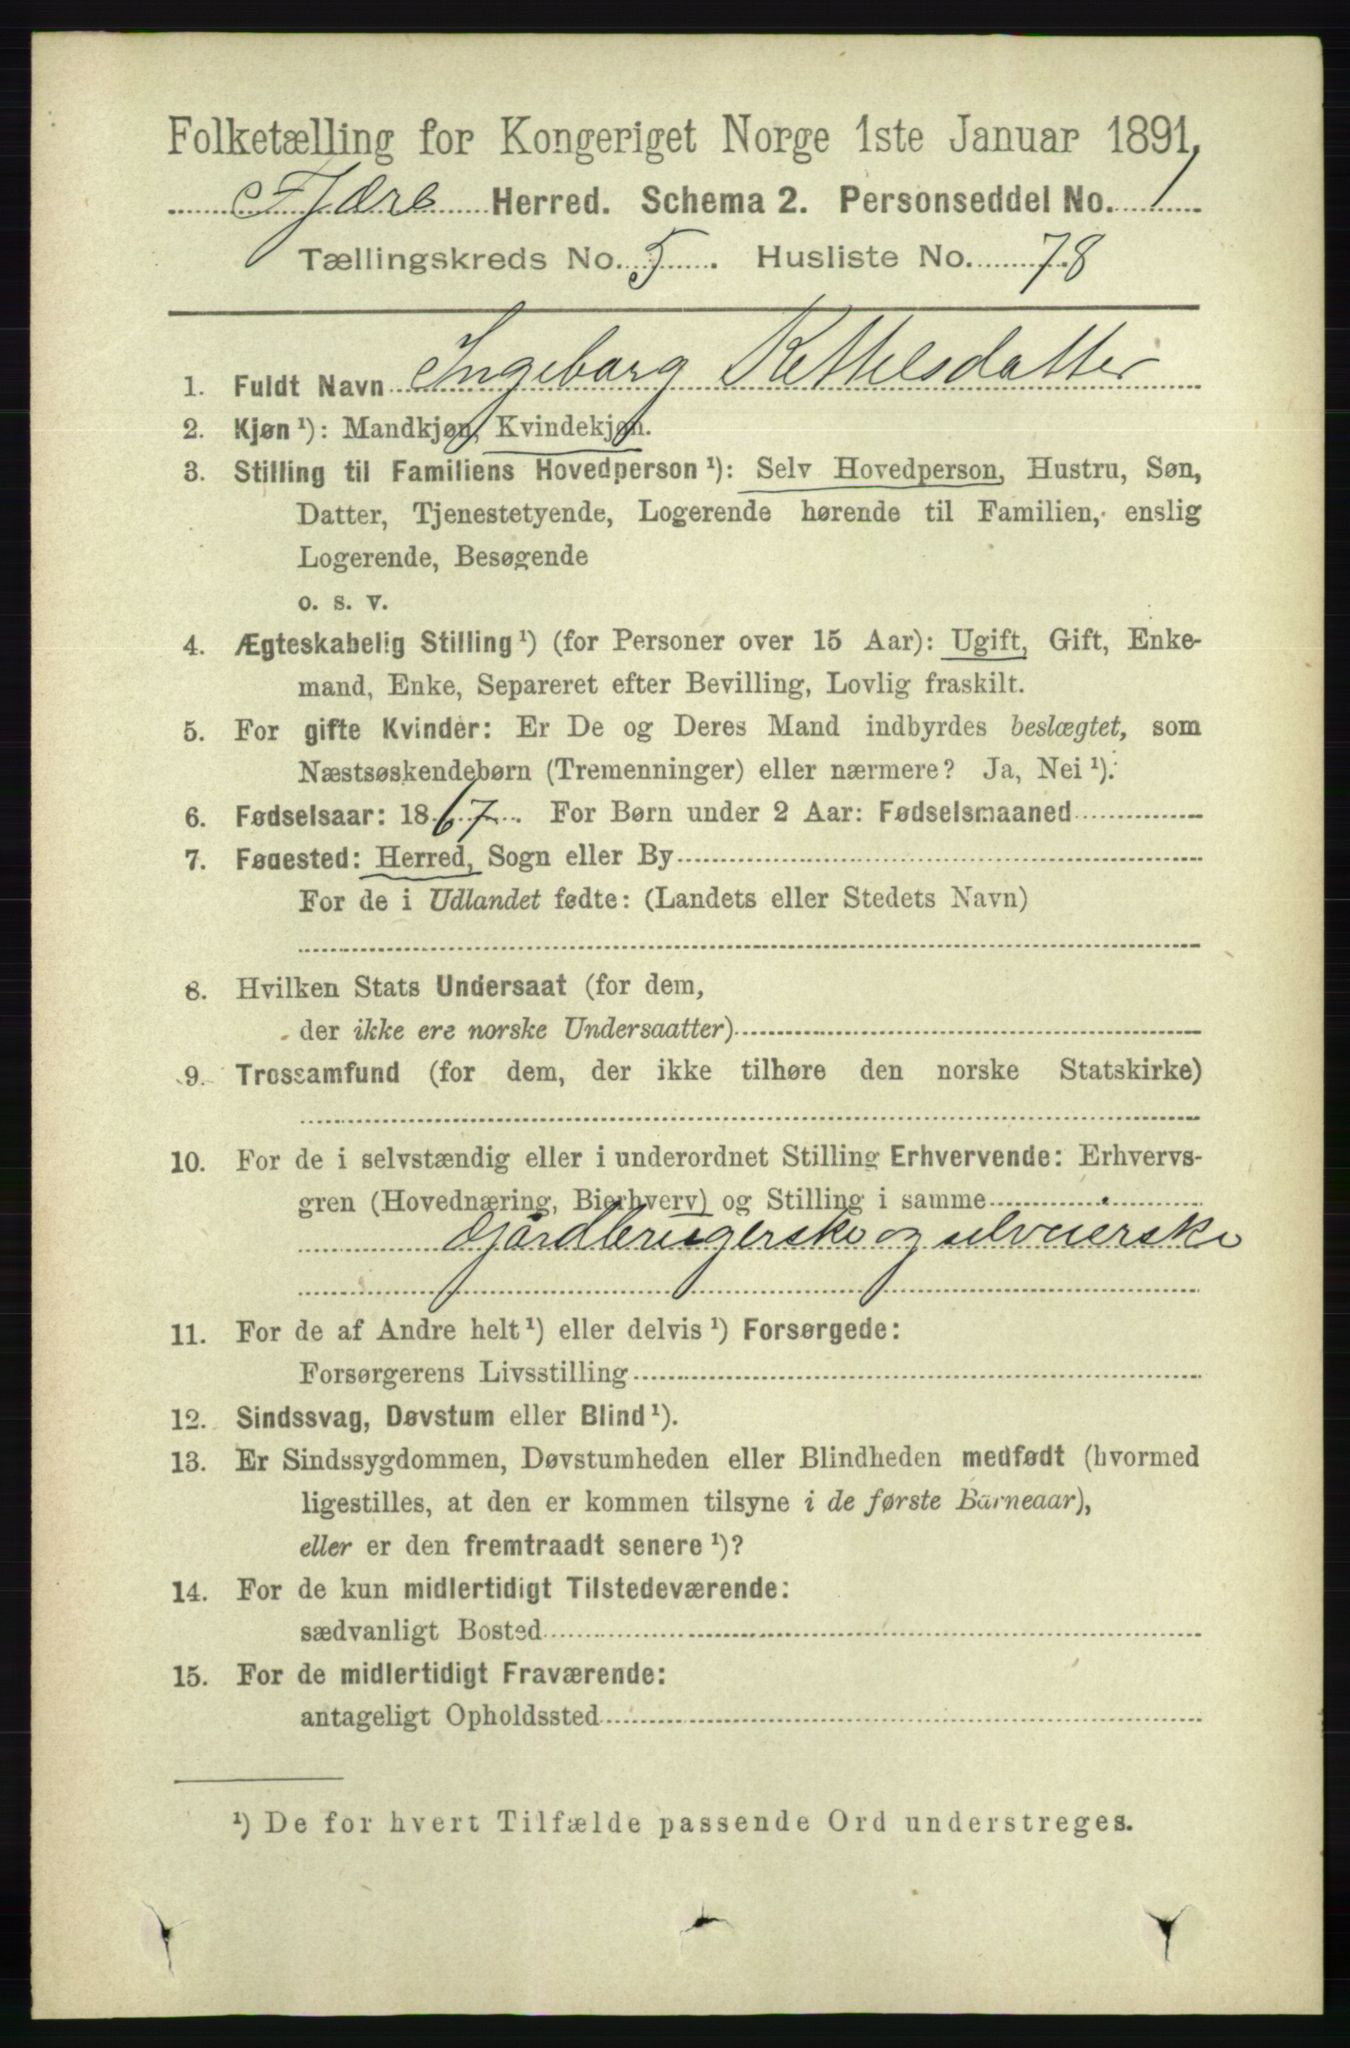 Folketælling for Kongeriget Norge 1ste Januar 1891.
Fjære Herred. Schema 2. Personseddel No. 1
Tællingskreds No. 5. Husliste No. 78
1. Fuldt Navn Ingeborg Kettelsdatter
2. Kjøn ¹): Mandkjøn, Kvindekjøn.
3. Stilling til Familiens Hovedperson ¹): Selv Hovedperson, Hustru, Søn,
Datter, Tjenestetyende, Logerende hørende til Familien, enslig
Logerende, Besøgende
o. s. v.
4. Ægteskabelig Stilling ¹) (for Personer over 15 Aar): Ugift, Gift, Enke-
mand, Enke, Separeret efter Bevilling, Lovlig fraskilt.
5. For gifte Kvinder: Er De og Deres Mand indbyrdes beslægtet, som
Næstsøskendebørn (Tremenninger) eller nærmere? Ja, Nei ¹).
6. Fødselsaar: 1867. For Børn under 2 Aar: Fødselsmaaned
7. Fødested: Herred, Sogn eller By
For de i Udlandet fødte: (Landets eller Stedets Navn)
8. Hvilken Stats Undersaat (for dem,
der ikke ere norske Undersaatter)
9. Trossamfund (for dem, der ikke tilhøre den norske Statskirke)
10. For de i selvstændig eller i underordnet Stilling Erhvervende: Erhvervs-
gren (Hovednæring, Bierhverv) og Stilling i samme
Gårdbrugerske og selveierske
11. For de af Andre helt ¹) eller delvis ¹) Forsørgede:
Forsørgerens Livsstilling
12. Sindssvag, Døvstum eller Blind ¹).
13. Er Sindssygdommen, Døvstumheden eller Blindheden medfødt (hvormed
ligestilles, at den er kommen tilsyne i de første Barneaar),
eller er den fremtraadt senere ¹)?
14. For de kun midlertidigt Tilstedeværende:
sædvanligt Bosted
15. For de midlertidigt Fraværende:
antageligt Opholdssted
¹) De for hvert Tilfælde passende Ord understreges.